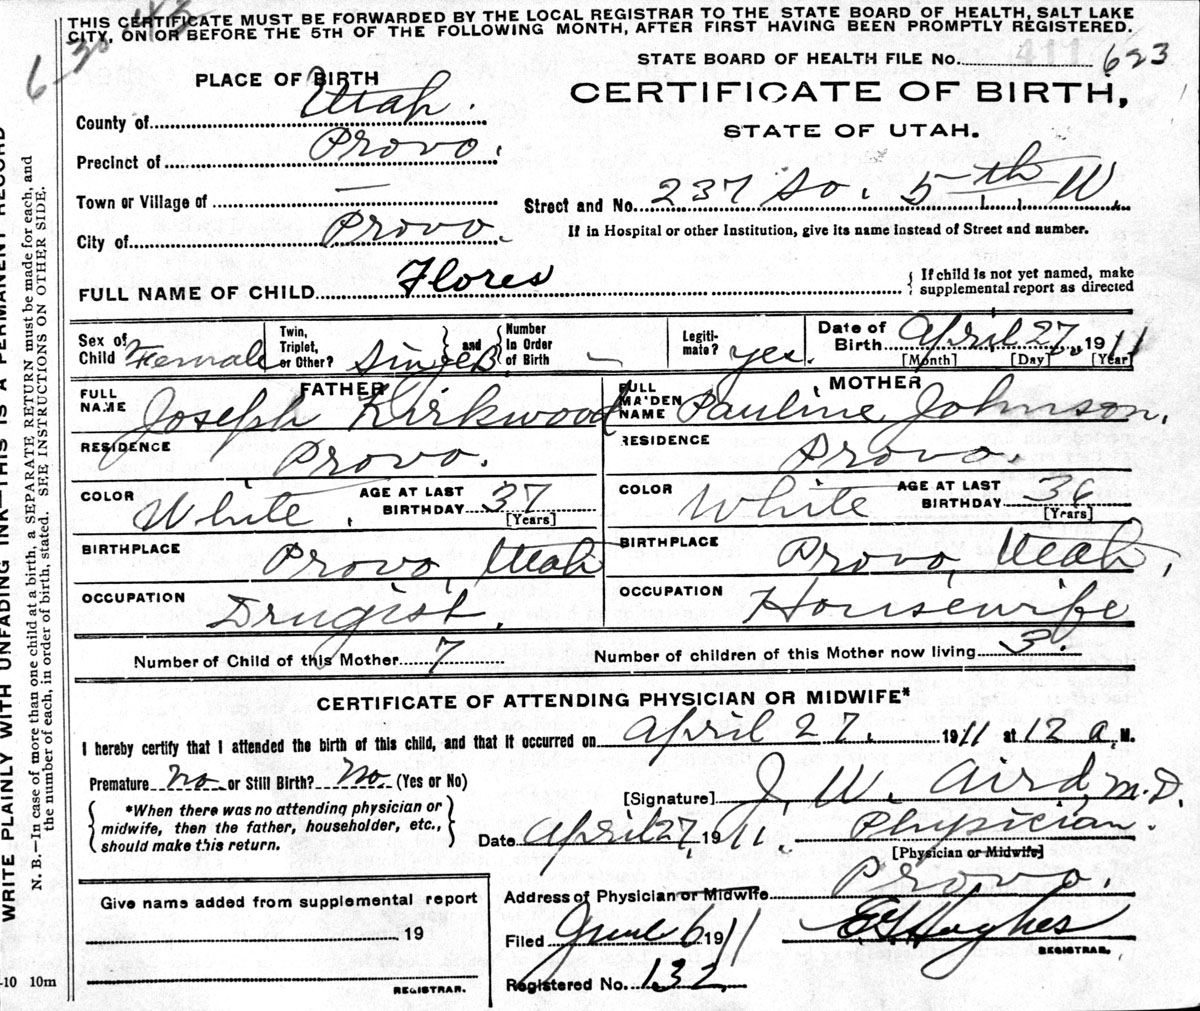 THIS CERTIFICATE MUST BE FORWARDED BY THE LOCAL REGISTRAR TO THE STATE BOARD OF HEALTH, SALT LAKE
CITY, ON OR BEFORE THE 5TH OF THE FOLLOWING MONTH, AFTER FIRST HAVING BEEN PROMPTLY REGISTERED.
6-30
STATE BOARD OF HEALTH FILE No. 411 623
PLACE OF BIRTH
CERTIFICATE OF BIRTH,
STATE OF UTAH.
County of Utah.
Precinct of Provo.
Town or Village of —
City of Provo.
Street and No. 237 So. 5th W.
If in Hospital or other Institution, give its name instead of Street and number.
FULL NAME OF CHILD Flores { If child is not yet named, make
supplemental report as directed
Sex of Child Female
Twin, Triplet, or Other? Singel } and { Number In Order of Birth —
Legiti- mate? yes.
Date of Birth April 27, 1911
[Month] [Day] [Year]
FATHER
FULL NAME Joseph Kirkwood
RESIDENCE Provo.
COLOR White. AGE AT LAST BIRTHDAY 37
[Years]
BIRTHPLACE Provo, Utah
OCCUPATION Drugist.
MOTHER
FULL MAIDEN NAME Pauline Johnson.
RESIDENCE Provo.
COLOR White AGE AT LAST BIRTHDAY 36
[Years]
BIRTHPLACE Provo, Utah,
OCCUPATION Housewife
Number of Child of this Mother 7 Number of children of this Mother now living 3.
CERTIFICATE OF ATTENDING PHYSICIAN OR MIDWIFE*
I hereby certify that I attended the birth of this child, and that it occurred on April 27. 1911 at 12 a. M.
Premature No. or Still Birth? No. (Yes or No)
{ *When there was no attending physician or
midwife, then the father, householder, etc.,
should make this return. }
[Signature] J. W. Aird M.D.
Date April 27, 1911. Physician.
[Physician or Midwife]
Address of Physician or Midwife Provo.
Filed June 6 1911 E G Hughes
REGISTRAR.
Registered No. 132
Give name added from supplemental report
19
REGISTRAR.
-10 10m
WRITE PLAINLY WITH UNFADING INK—THIS IS A PERMANENT RECORD
N. B.—In case of more than one child at a birth, a SEPARATE RETURN must be made for each, and
the number of each, in order of birth, stated. SEE INSTRUCTIONS ON OTHER SIDE.